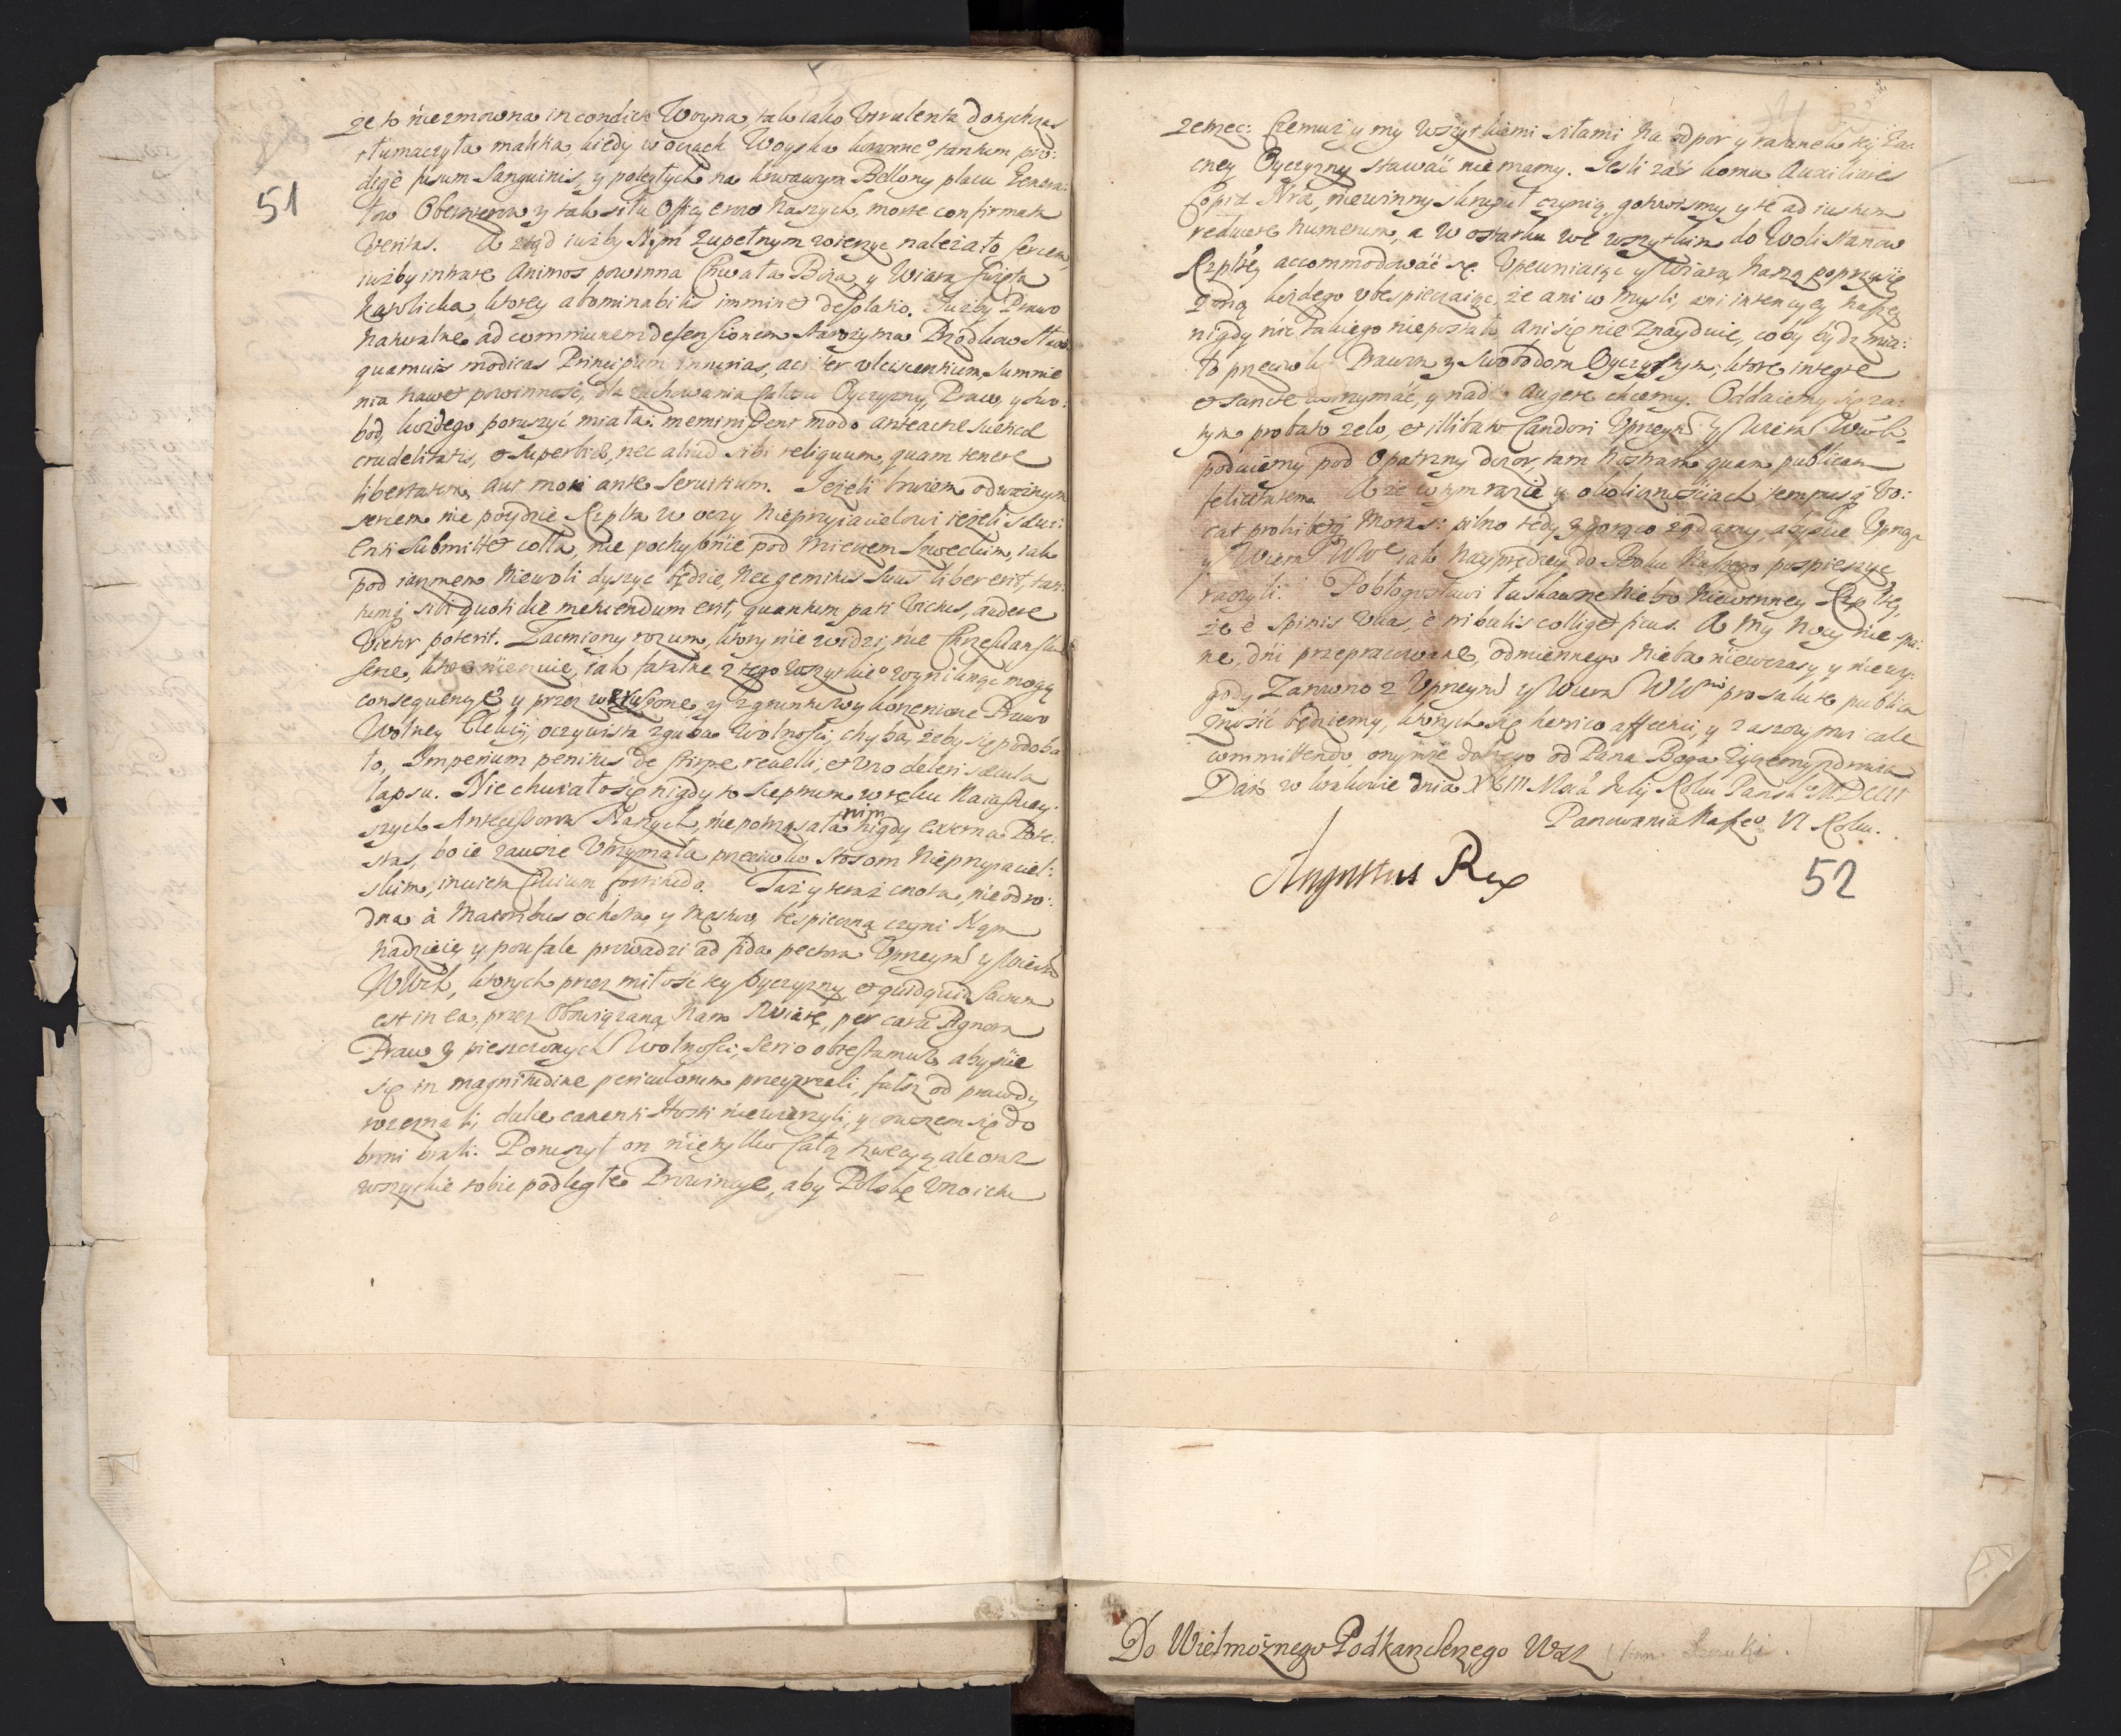 51
że to nie zmowna in condicto Woyna, tak iako virulenta dotychczas
tłumaczyła malitia, kiedy w oczach Woyska koronneo, tantum pro:
digè fusum Sanguinis, y poległych na krwawym Bellony placu Genera:
łow Obersterow y tak siłu Officyerow Naszych, morte confirmata
Veritas. A ztąd iużby Nąm zupełnym wierzyc należało Sercem,
iużby intrare Animos powinna Chwała Boża, y Wiara Swięta
Katolicka, ktorey abominabilis imminet desolatio. Iużby Prawo
naturalne ad communem defensionem starożytna Przodkow Sława
quamvis modicas Principum iniurias, acriter ulciscentium, Sumnie
nia nawet powinność, dla zachowania całosci Oyczyzny, Praw, y swo:
bod, kożdego poruszyć miała: memini Dent modo anteacta Sueticae
crudelitatis, et superbiae, nec aliud sibi reliquum, quam tenere
libertatem aut mori ante Servitium. Jeżeli bowiem odważnym
sercem nie poydzie Rzplta w oczy Nieprzyiacielowi ieżeli saevi:
enti submittet colla, nie pochybnie pod Mieczem Szweckim, iak
pod iarzmem Niewoli dyszyc będzie, nec gemitus suus liber erit, tan:
tumq sibi quotidie metuendum erit, quantum pati Victus, audere
Victor poterit. Zacmiony rozum, ktory nie widzi, nie Chrzescianskie
serce, ktore nie czuie, iak fatalne z tego wszytkieo wyniknąc mogą
consequencye y przez wzruszone, y z gruntu wykorzenione Prawo
Wolney Elekcij, oczywista zguba Wolnosci, chyba, żeby się podoba
ło, Imperium penitus de stirpe revelli, et uno deleri saecula
lapsu. Nie chwiało się nigdy to Sceptrum w ręku Naiasniey:
szych Antecessorow Naszych, nie potrząsała nim nigdy externa Pote:
stas, bo ie zawsze utrzymała przeciwko ciosom Nieprzyiaciel:
skim, invicta Civium fortitudo. Taż y teraz cnota, nie odro:
dna à Maioribus ochota y Męstwo, bespieczną czyni Nąm
Nadzieię y poufale prowadzi ad fida pectora Uprzeym y Wiern
WWch, ktorych przez miłość tey Oyczyzny, et quidquid Sacrum
est in ea, przez Obowiązaną Nam Wiarę, per cara Pignora
Praw y pieszczonych Wolnosci, serio obtestamur, abyscie
się in magnitudine periculorum przeyzrzeli, fałsz od prawdy
rozeznali, dulce canenti Hosti nie wierzyli, y owszem się do
broni brali. Poruszył on nietylko Całą Szwecyą ale oraz
wszytkie sobie podległe Prowincye, aby Polskę uno ictu
zemzec: Czemuż y my wszytkiemi siłami na odpor y ratunek tey Za:
cney Oyczyzny stawać nie mamy. Jesli zaś komu Auxiliares
Copiae Nrae, niewinny skrupuł czynią, gotowismy y te ad iustum
reducere numerum, a w ostatku we wszytkim do Woli Stanow
Rzpltey accommodować się. Upewniaiąc y Wiarą Naszą poprzysię
żoną kożdego ubespieczaiąc, że ani w mysli, ani intencyey naszey
nigdy nic takiego niepostało ani się nie znayduie, coby bydz mia:
ło przeciwko Prawom y Swobodom Oyczystym, ktore integre
et sancte utrzymać, y nad to augere chcemy. Oddaiemy się za:
tym probato zelo, et illibato Candori Uprzeym y Wiern WWch
poduiemy pod Opatrzny dozor, tam Nostram quam publicam
felicitatem. A że w tym razie y okolicznościach tempus q vo:
cat prohibetq Moras: pilno tedy y gorąco żądamy, abyscie Uprzę
y Wiern WWe iak nayprędzey do Boku Naszego pospieszyc
raczyli. Pobłogosławi łaskawe Niebo niewinney Rzpltey,
że è spinis uvas, è tribulis colliget ficus. A My nocy nie spa:
ne, dni przepracowane, odmiennego nieba niewczasy y niewy:
gody Zarowno z Uprzeym y Wiern WWmi pro salute publica
znosić będziemy, ktorych się heroico affectui, y zaszczytowi cale
committendo, onymże dobrego od Pana Boga życzemy zdrowia
Dan w Krakowie dnia XVIII Msca Julij Roku Panskeo MDCCII
Panowania Naszeo VI Roku.
Augustus Rex
52
Do Wielmożnego Podkanclerzego WXL